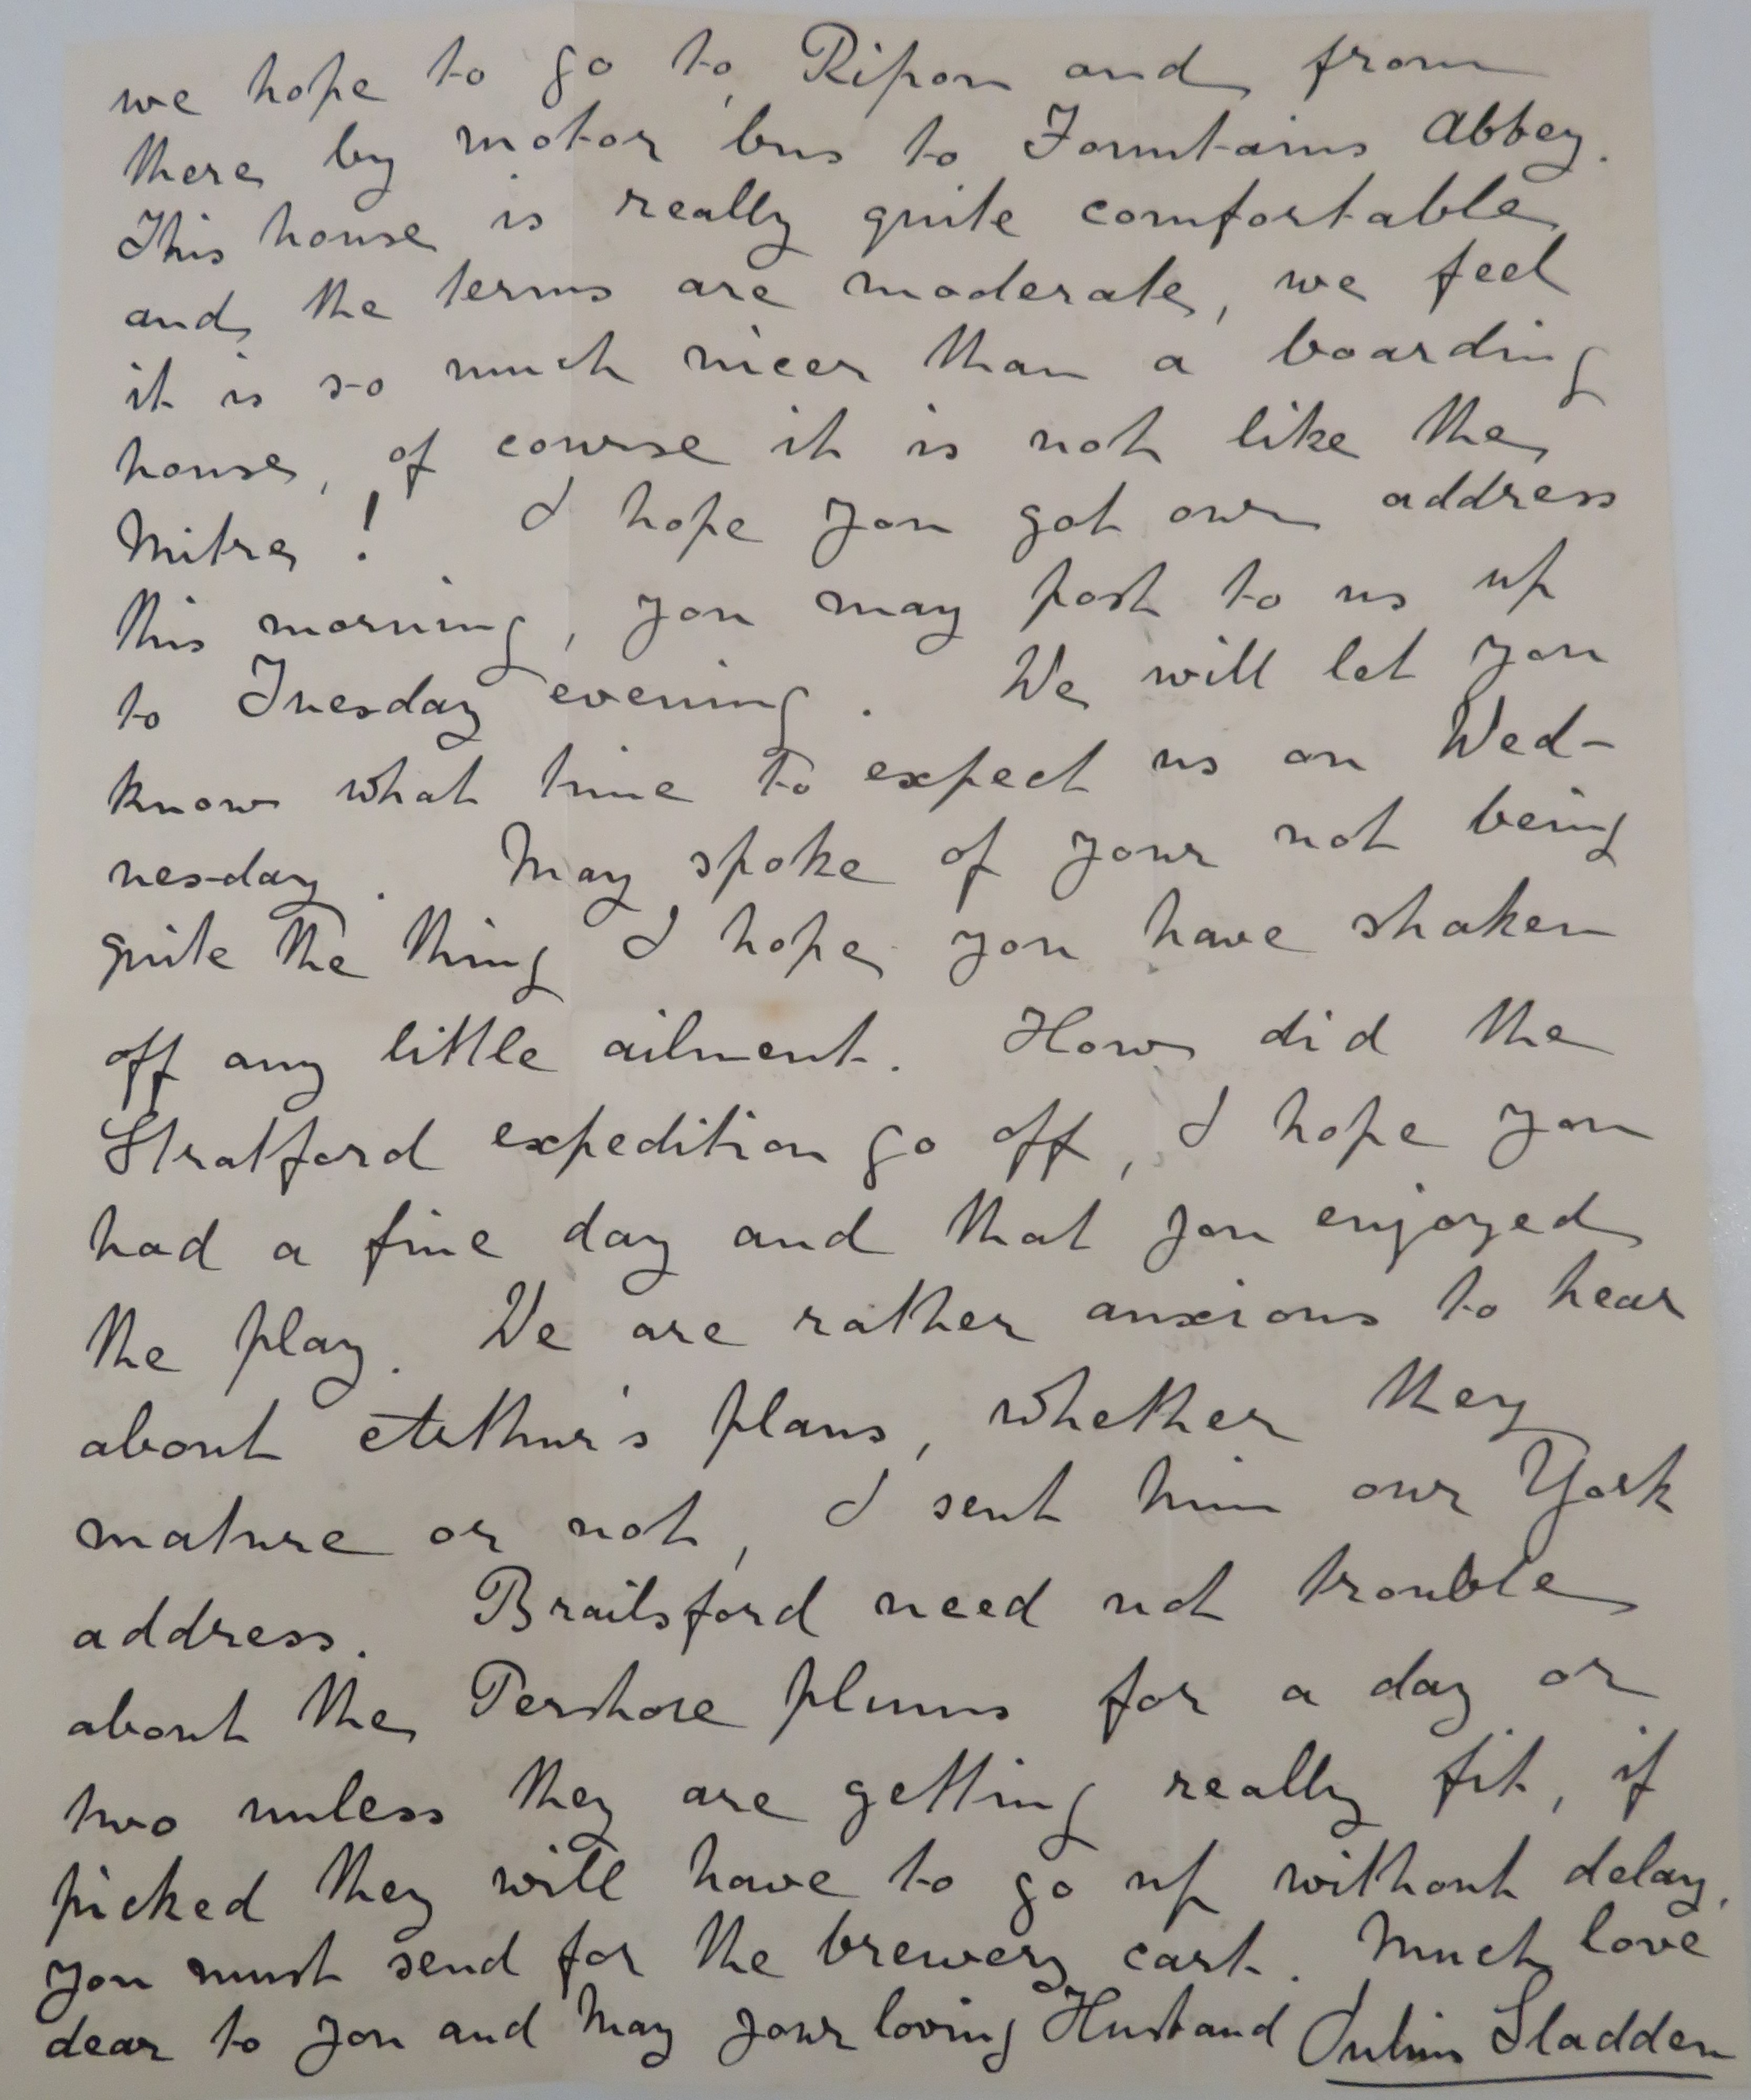 we hope to go to Ripon and from
there by motor bus to Fountains Abbey.
This house is really quite comfortable
and the terms are moderate, we feel
it is so much nicer than a boarding
house, of course it is not like the
Mitre ! I hope you got our address
this morning, you may post to us up
to Tuesday evening. We will let you
know what time to expect us on Wed-
nesday. May spoke of your not being
quite the thing I hope you have shaken
off any little ailment. How did the
Stratford expedition go off, I hope you
had a fine day and that you enjoyed
the play. We are rather anxious to hear
about Arthur's plans, whether they
mature or not, I sent him our York
address. Brailsford need not trouble
about the Pershore plums for a day or
two unless they are getting really fit, if
picked they will have to go up without delay,
you must send for the brewery cart. Much love
dear to you and May your loving Husband Julius Sladden